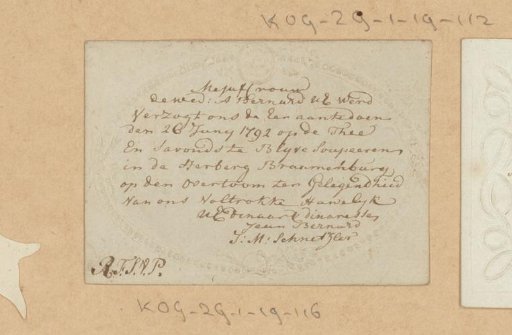 KOG-2G-1-19-112
Mejuffrouw
de wed: A Bernard UE werd
Verzogt ons de Eer aantedoen
den 26 Juny 1792 op de Thee
En Savonds te Blyve Soupeeren
in de Herberg Braamenburg
op den overtoom ter Gelegentheid
van ons Voltrokke Huwelyk
UE Dinaar & dinaresse
Jean Bernard
J: M: Schnetzler
R.S.V.P.
KOG-2G-1-19-116